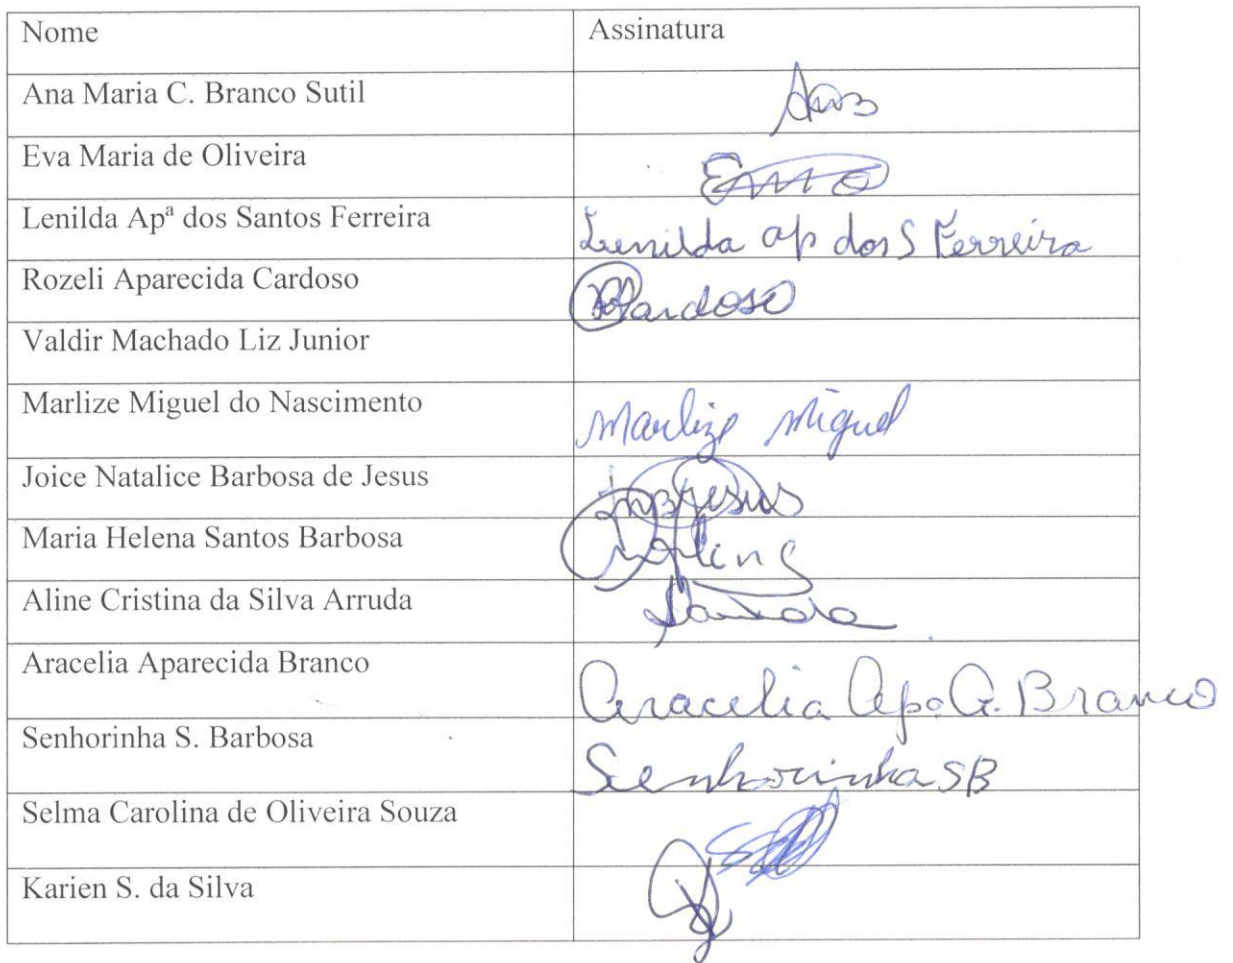 Nome Assinatura
Ana Maria C. Branco Sutil
Eva Maria de Oliveira
Lenilda Apª dos Santos Ferreira Lenilda ap dos S Ferreira
Rozeli Aparecida Cardoso RCardoso
Valdir Machado Liz Junior
Marlize Miguel do Nascimento Marlize Miguel
Joice Natalice Barbosa de Jesus JNBJesus
Maria Helena Santos Barbosa
Aline Cristina da Silva Arruda
Aracelia Aparecida Branco Aracelia Apª G. Branco
Senhorinha S. Barbosa Senhorinha SB
Selma Carolina de Oliveira Souza
Karien S. da Silva